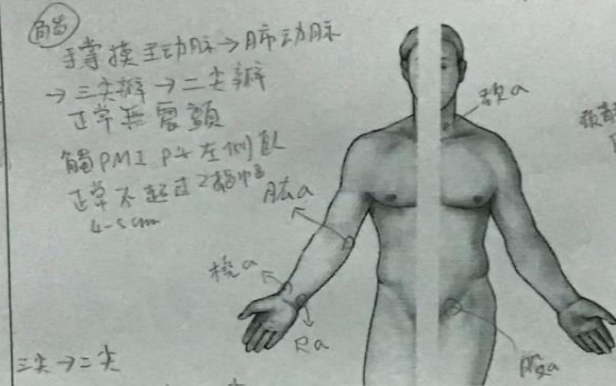 觸
手掌摸主动脉→肺动脉
→三尖瓣→二尖瓣
正常無震顫
觸PMI pt左側臥
正常不超过2指幅
4-5cm
頸a
肱a
橈a
尺a
三尖→二尖